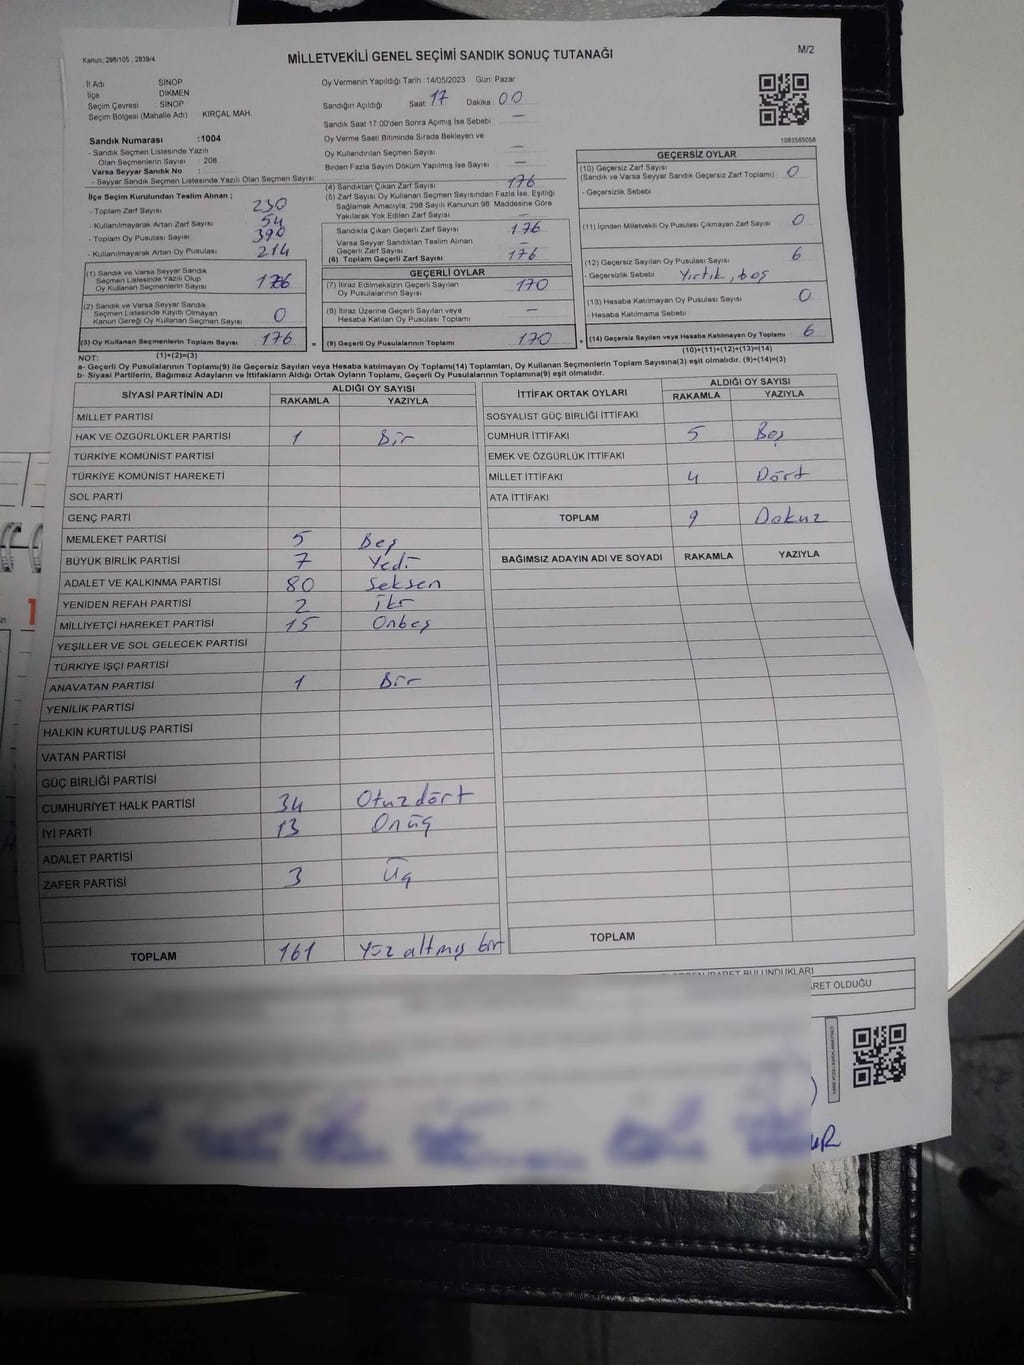 Kanun, 298/105 , 2839/4
MİLLETVEKİLİ GENEL SEÇİMİ SANDIK SONUÇ TUTANAĞI
M/2
İl Adı : SİNOP
İlçe : DİKMEN
Seçim Çevresi : SİNOP
Seçim Bölgesi (Mahalle Adı) KIRÇAL MAH.
Sandık Numarası :1004
- Sandık Seçmen Listesinde Yazılı
Olan Seçmenlerin Sayısı : 208
Varsa Seyyar Sandık No :
- Seyyar Sandık Seçmen Listesinde Yazılı Olan Seçmen Sayısı:
İlçe Seçim Kurulundan Teslim Alınan ;
- Toplam Zarf Sayısı 230
- Kullanılmayarak Artan Zarf Sayısı 54
- Toplam Oy Pusulası Sayısı 390
- Kullanılmayarak Artan Oy Pusulası 214
(1) Sandık ve Varsa Seyyar Sandık
Seçmen Listesinde Yazılı Olup
Oy Kullanan Seçmenlerin Sayısı 176
(2) Sandık ve Varsa Seyyar Sandık
Seçmen Listesinde Kayıtlı Olmayan
Kanun Gereği Oy Kullanan Seçmen Sayısı 0
(3) Oy Kullanan Seçmenlerin Toplam Sayısı 176
Oy Vermenin Yapıldığı Tarih :14/05/2023 Gün: Pazar
Sandığın Açıldığı Saat: 17 Dakika : 00
Sandık Saat 17:00'den Sonra Açımış İse Sebebi : —
Oy Verme Saati Bitiminde Sırada Bekleyen ve
Oy Kullandırılan Seçmen Sayısı : —
Birden Fazla Sayım Döküm Yapılmış İse Sayısı : —
(4) Sandıktan Çıkan Zarf Sayısı 176
(5) Zarf Sayısı Oy Kullanan Seçmen Sayısından Fazla İse, Eşitliği
Sağlamak Amacıyla; 298 Sayılı Kanunun 98. Maddesine Göre
Yakılarak Yok Edilen Zarf Sayısı : —
Sandıkta Çıkan Geçerli Zarf Sayısı 176
Varsa Seyyar Sandıktan Teslim Alınan
Geçerli Zarf Sayısı —
(6) Toplam Geçerli Zarf Sayısı 176
GEÇERLİ OYLAR
(7) İtiraz Edilmeksizin Geçerli Sayılan
Oy Pusulalarının Sayısı 170
(8) İtiraz Üzerine Geçerli Sayılan veya
Hesaba Katılan Oy Pusulası Toplamı —
= (9) Geçerli Oy Pusulalarının Toplamı 170
1083585058
GEÇERSİZ OYLAR
(10) Geçersiz Zarf Sayısı
(Sandık ve Varsa Seyyar Sandık Geçersiz Zarf Toplamı) 0
- Geçersizlik Sebebi
(11) İçinden Milletvekili Oy Pusulası Çıkmayan Zarf Sayısı 0
(12) Geçersiz Sayılan Oy Pusulası Sayısı 6
- Geçersizlik Sebebi Yırtık, boş
(13) Hesaba Katılmayan Oy Pusulası Sayısı 0
- Hesaba Katılmama Sebebi
+ (14) Geçersiz Sayılan veya Hesaba Katılmayan Oy Toplamı 6
NOT: (1)+(2)=(3)
(10)+(11)+(12)+(13)=(14)
a- Geçerli Oy Pusulalarının Toplamı(9) ile Geçersiz Sayılan veya Hesaba katılmayan Oy Toplamı(14) Toplamları, Oy Kullanan Seçmenlerin Toplam Sayısına(3) eşit olmalıdır. (9)+(14)=(3)
b- Siyasi Partilerin, Bağımsız Adayların ve İttifakların Aldığı Ortak Oyların Toplamı, Geçerli Oy Pusulalarının Toplamına(9) eşit olmalıdır.
SİYASİ PARTİNİN ADI
ALDIĞI OY SAYISI
RAKAMLA YAZIYLA
MİLLET PARTİSİ
HAK VE ÖZGÜRLÜKLER PARTİSİ 1 Bir
TÜRKİYE KOMÜNİST PARTİSİ
TÜRKİYE KOMÜNİST HAREKETİ
SOL PARTİ
GENÇ PARTİ
MEMLEKET PARTİSİ 5 Beş
BÜYÜK BİRLİK PARTİSİ 7 Yedi
ADALET VE KALKINMA PARTİSİ 80 Seksen
YENİDEN REFAH PARTİSİ 2 İki
MİLLİYETÇİ HAREKET PARTİSİ 15 Onbeş
YEŞİLLER VE SOL GELECEK PARTİSİ
TÜRKİYE İŞÇİ PARTİSİ
ANAVATAN PARTİSİ 1 Bir
YENİLİK PARTİSİ
HALKIN KURTULUŞ PARTİSİ
VATAN PARTİSİ
GÜÇ BİRLİĞİ PARTİSİ
CUMHURİYET HALK PARTİSİ 34 Otuzdört
İYİ PARTİ 13 Onüç
ADALET PARTİSİ
ZAFER PARTİSİ 3 Üç
TOPLAM 161 Yüz altmış bir
İTTİFAK ORTAK OYLARI
ALDIĞI OY SAYISI
RAKAMLA YAZIYLA
SOSYALİST GÜÇ BİRLİĞİ İTTİFAKI
CUMHUR İTTİFAKI 5 Beş
EMEK VE ÖZGÜRLÜK İTTİFAKI
MİLLET İTTİFAKI 4 Dört
ATA İTTİFAKI
TOPLAM 9 Dokuz
BAĞIMSIZ ADAYIN ADI VE SOYADI RAKAMLA YAZIYLA
TOPLAM
BULUNDUKLARI
OLDUĞU